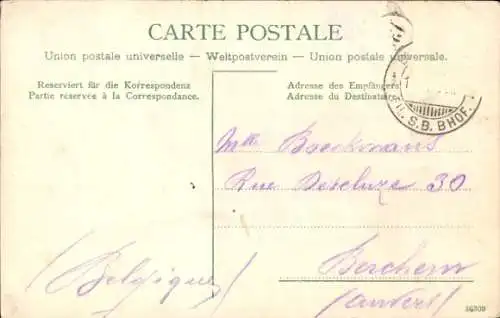 CARTE POSTALE
Union postale universelle — Weltpostverein — Union postale universale.
Reserviert für die Korrespondenz
Partie réservée à la Correspondance.
Adresse des Empfängers
Adresse du Destinataire
S.B. BHOF.
Mlle Boeckmans
Rue Descluze 30
Berchem
(Anvers)
(Belgique)